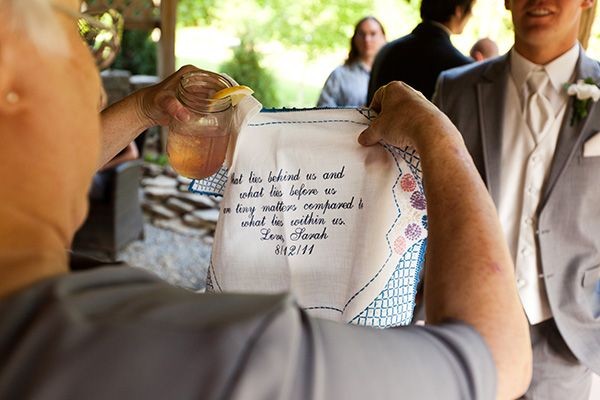 What lies behind us and
what lies before us
tiny matters compared to
what lies within us.
Love, Sarah
8/12/11